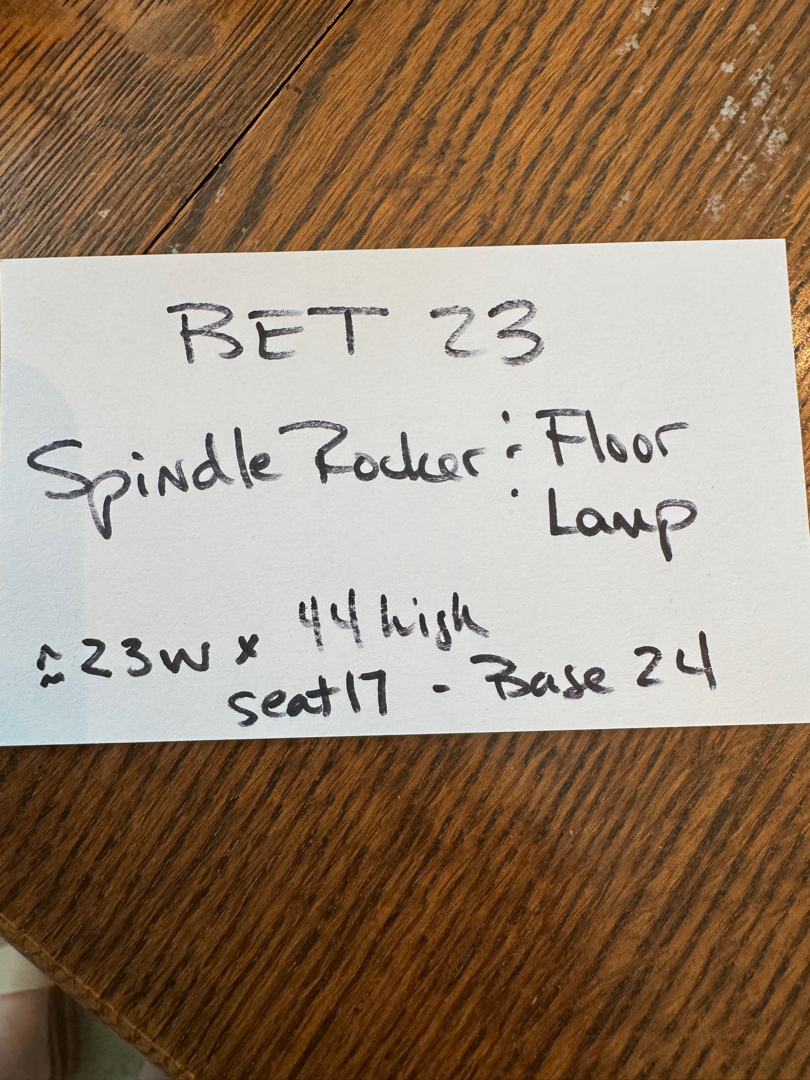 BET 23
Spindle Rocker : Floor
Lamp
≈ 23W x 44 high
seat 17 - Base 24